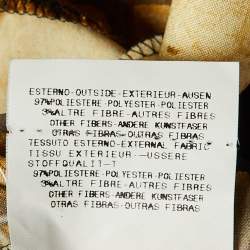 ESTERNO-OUTSIDE-EXTERIEUR-AUSEN
97%POLIESTERE-POLYESTER-POLIESTER
3%ALTRE FIBRE-AUTRES FIBRES
OTHER FIBERS-ANDERE KUNSTFASER
OUTRAS FIBRAS-OUTRAS FIBRAS
TESSUTO ESTERNO-EXTERNAL FABRIC
TISSU EXTERIEUR-USSERE
STOFFQUALIT-T
97%POLIESTERE-POLYESTER-POLIESTER
3%ALTRE FIBRE-AUTRES FIBRES
OTHER FIBERS-ANDERE KUNSTFASER
OUTRAS FIBRAS-OUTRAS FIBRAS